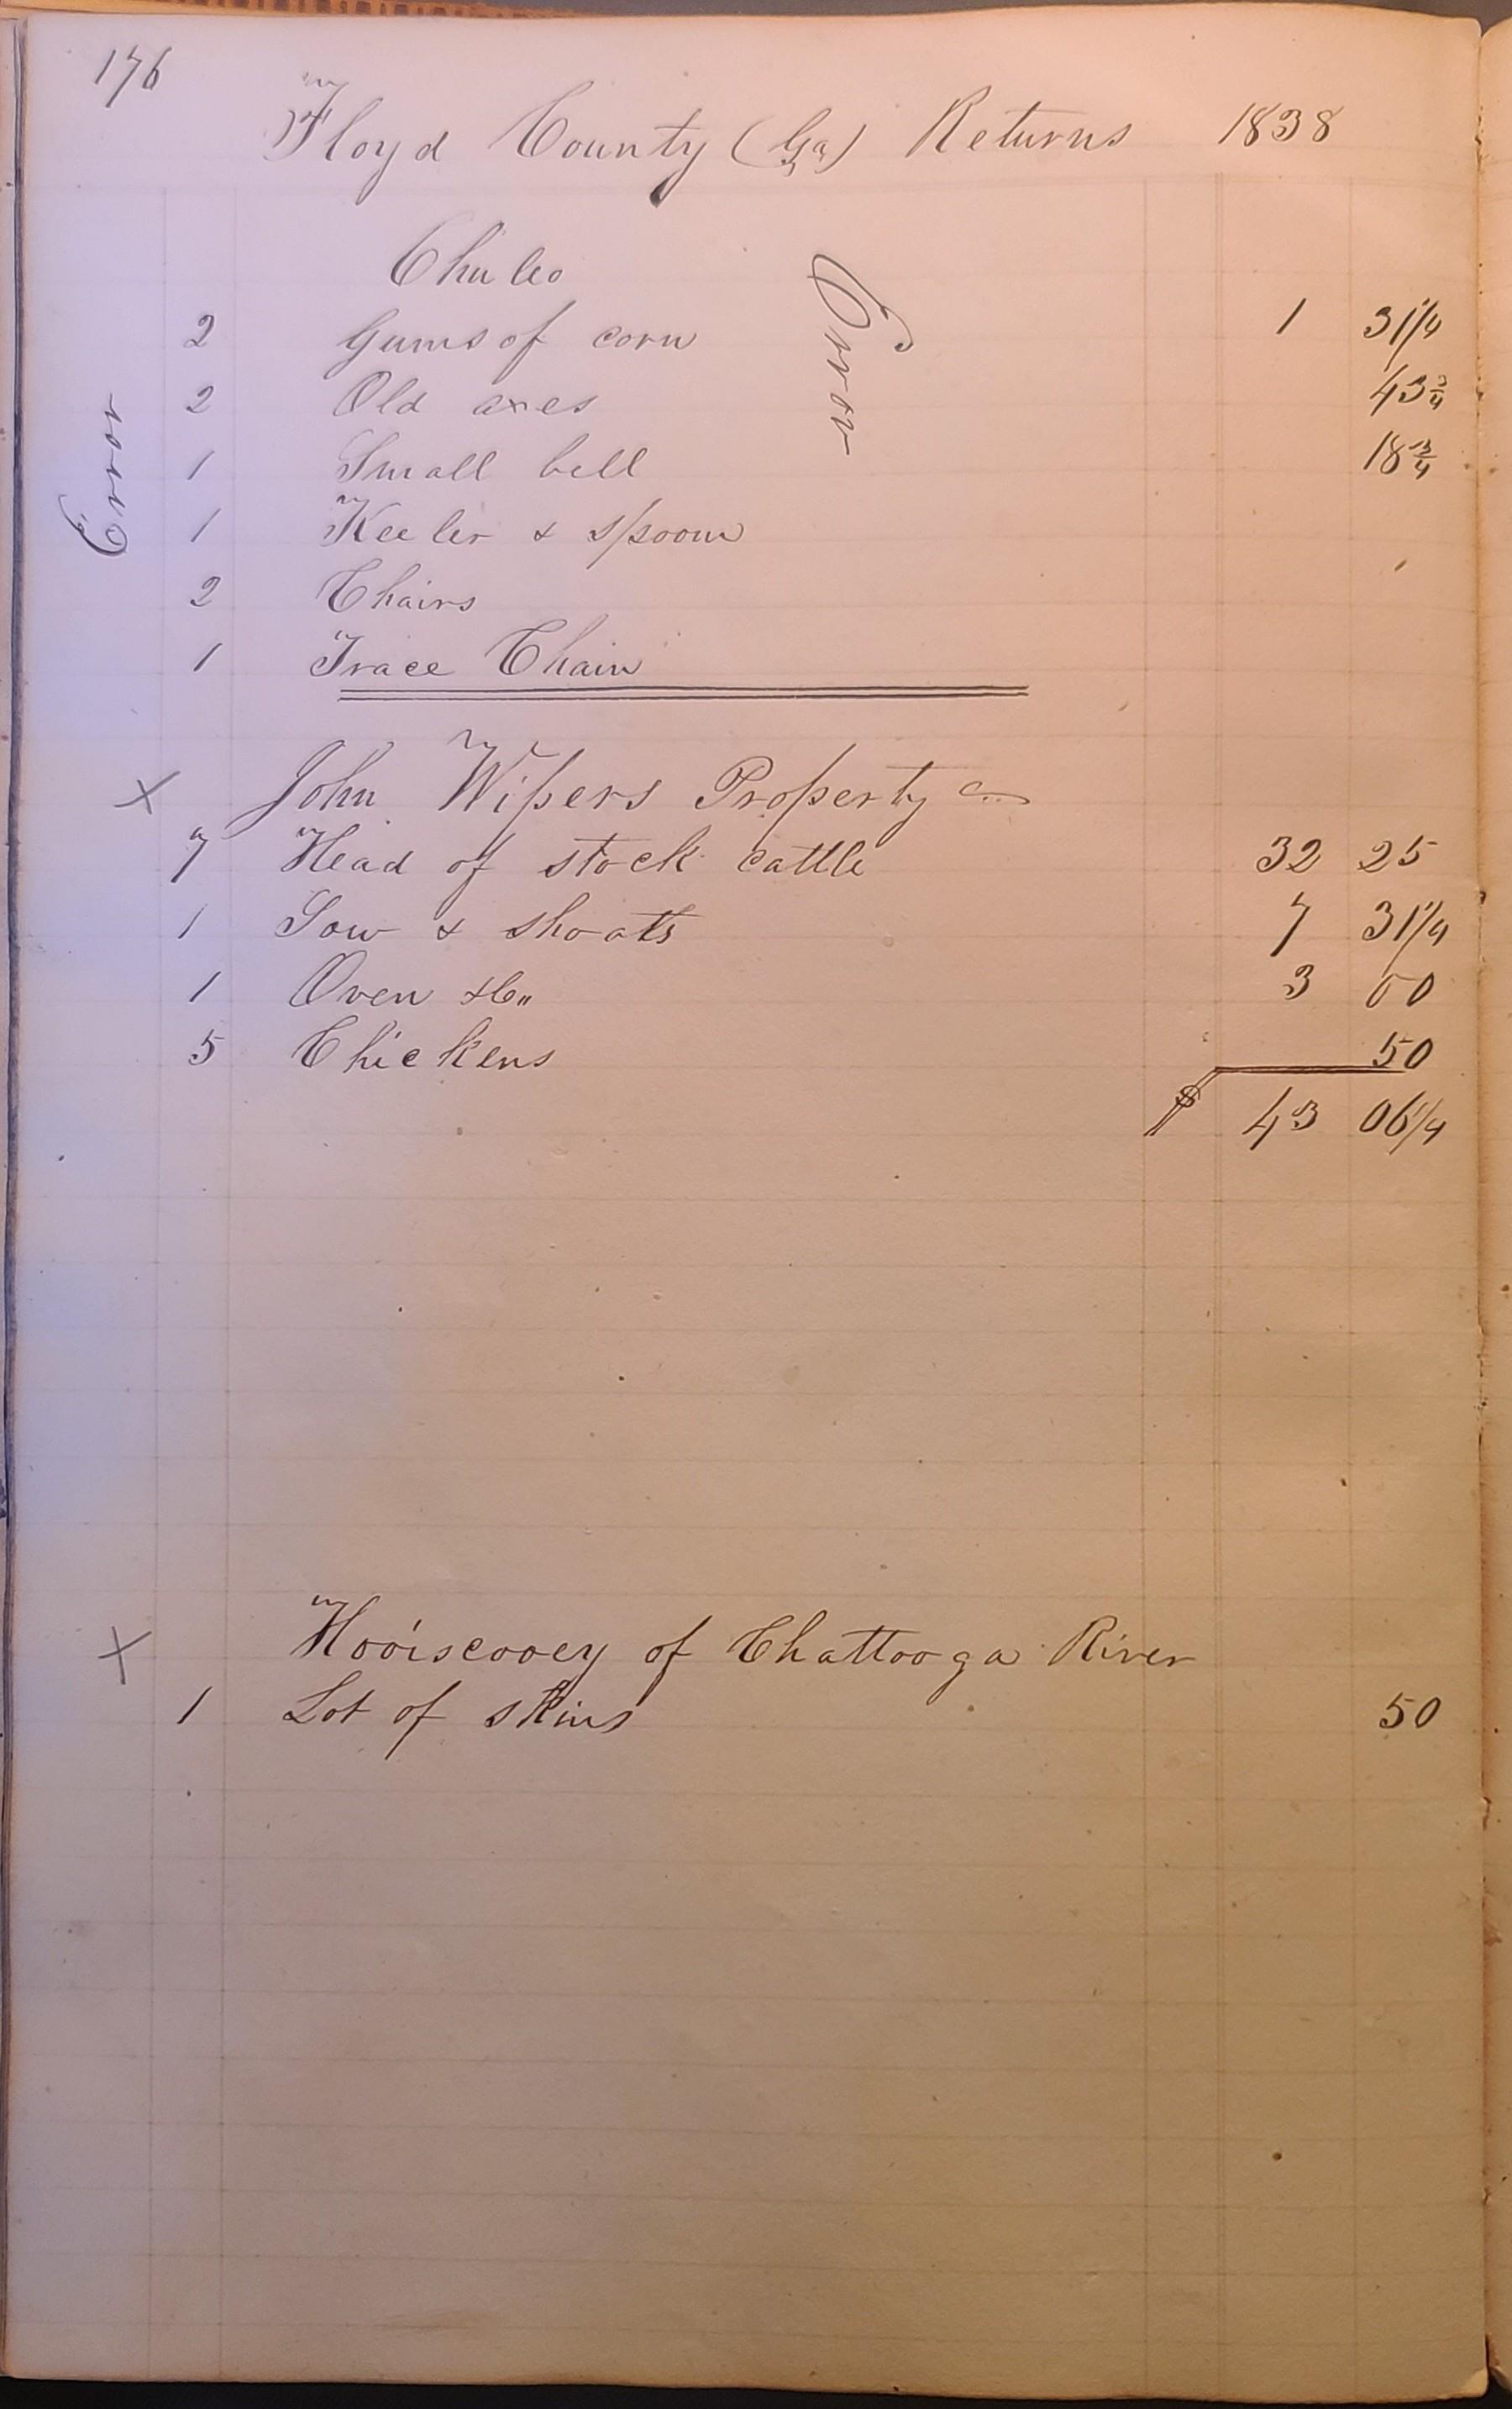 176
Floyd County (Ga) Returns 1838
Chuleo
Error
Error
2 Gums of corn 1 31 1/4
2 Old axes 43 3/4
1 Small bell 18 3/4
1 Keeler & spoon
2 Chairs
1 Trace Chain
x John Wipers Property
7 Head of stock cattle 32 25
1 Sow & shoats 7 31 1/4
1 Oven &c" 3 00
5 Chickens 50
$ 43 06 1/4
x Hooiscooey of Chattooga River
1 Lot of skins 50